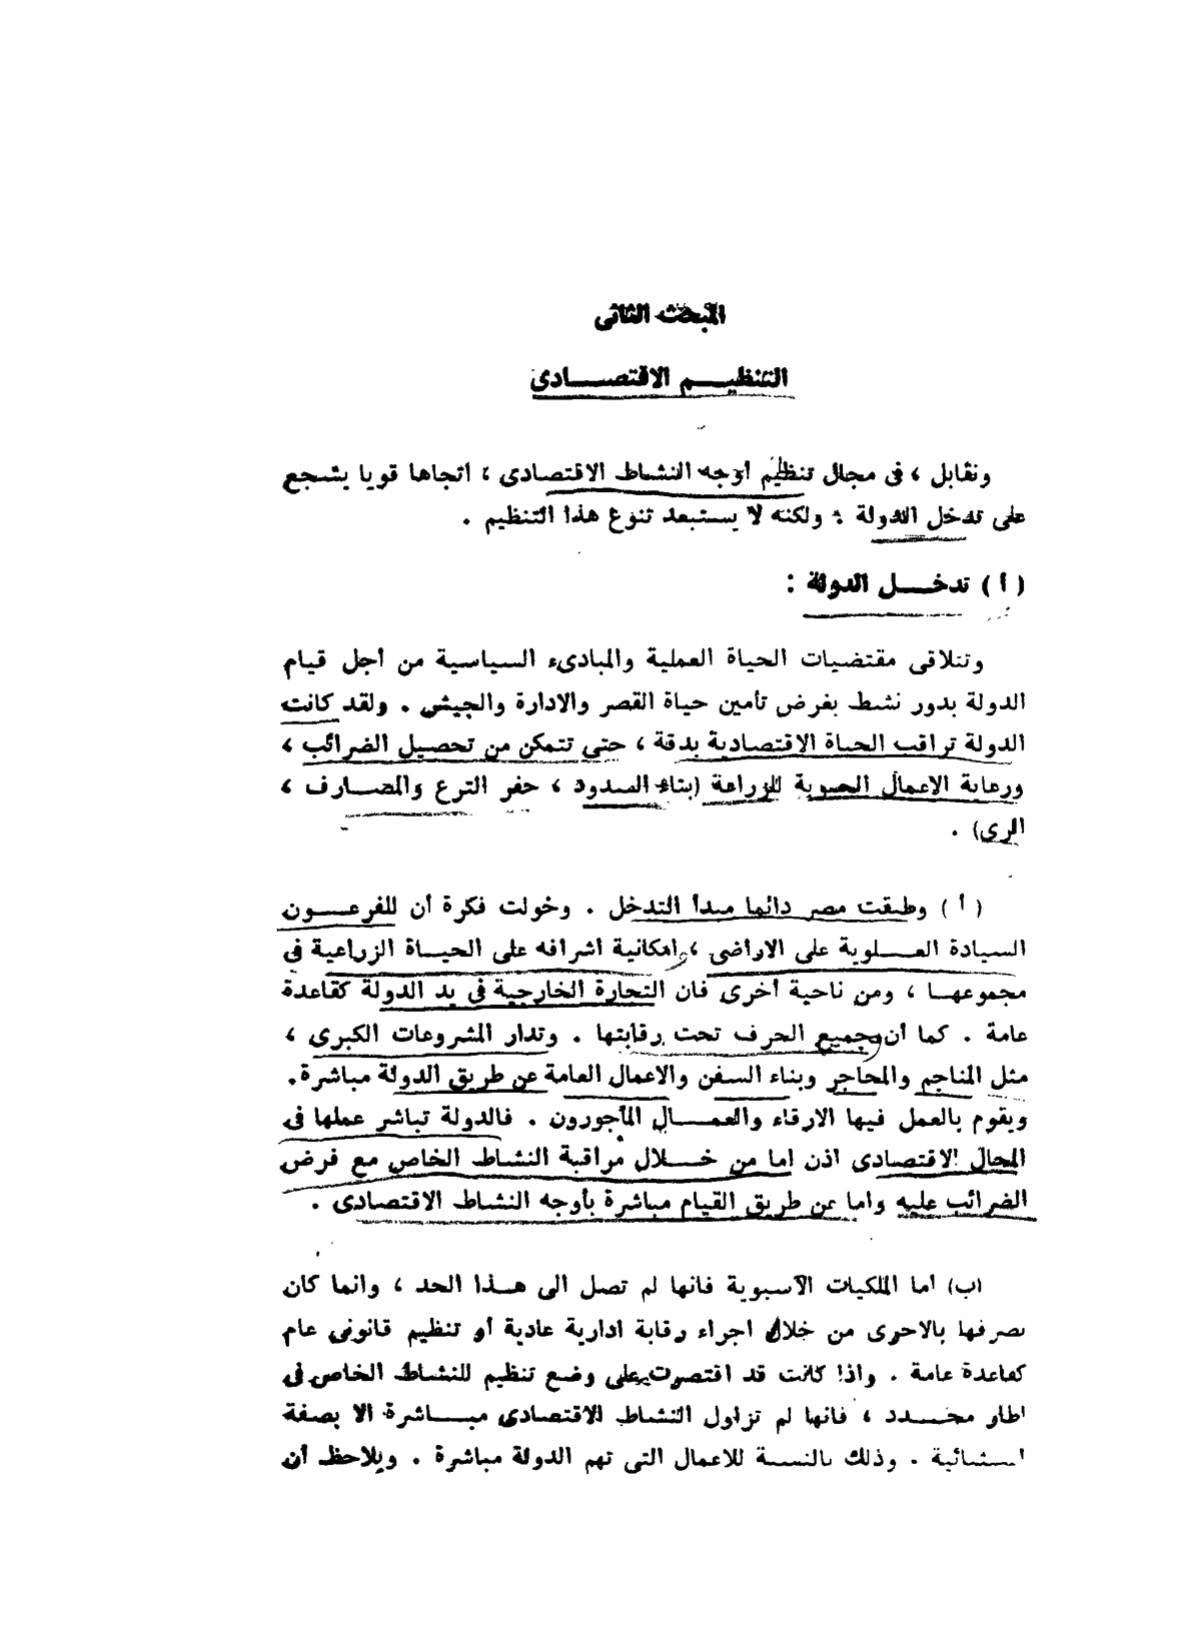 المبحث الثانى
التنظيـــم الاقتصـــادى
ونقابل ، فى مجال تنظيم أوجه النشاط الاقتصادى ، اتجاها قويا يشجع
على تدخل الدولة ؛ ولكنه لا يستبعد تنوع هذا التنظيم .
( أ ) تدخـــل الدولة :
وتتلاقى مقتضيات الحياة العملية والمبادىء السياسية من أجل قيام
الدولة بدور نشط بغرض تأمين حياة القصر والادارة والجيش . ولقد كانت
الدولة تراقب الحياة الاقتصادية بدقة ، حتى تتمكن من تحصيل الضرائب ،
ورعاية الاعمال الحيوية للزراعة (بناء السدود ، حفر الترع والمصــارف ،
الرى) .
( أ ) وطبقت مصر دائما مبدأ التدخل . وخولت فكرة أن للفرعـــون
السيادة العـــلوية على الاراضى ، وامكانية اشرافه على الحيــاة الزراعية فى
مجموعهــا ، ومن ناحية أخرى فان التجارة الخارجية فى يد الدولة كقاعدة
عامة . كما أن جميع الحرف تحت رقابتها . وتدار المشروعات الكبرى ،
مثل المناجم والمحاجر وبناء السفن والاعمال العامة عن طريق الدولة مباشرة.
ويقوم بالعمل فيها الارقاء والعمـــال المأجورون . فالدولة تباشر عملها فى
المجال الاقتصادى اذن اما من خـــلال مراقبة النشاط الخاص مع فرض
الضرائب عليه واما عن طريق القيام مباشرة بأوجه النشاط الاقتصادى .
(ب) أما الملكيات الآسيوية فانها لم تصل الى هــذا الحد ، وانما كان
تصرفها بالاحرى من خلال اجراء رقابة ادارية عادية أو تنظيم قانونى عام
كقاعدة عامة . واذا كانت قد اقتصرت على وضع تنظيم للنشاط الخاص فى
اطار محـــدد ، فانها لم تزاول النشاط الاقتصادى مبـــاشرة الا بصفة
استثنائية . وذلك بالنسبة للاعمال التى تهم الدولة مباشرة . ويلاحظ أن